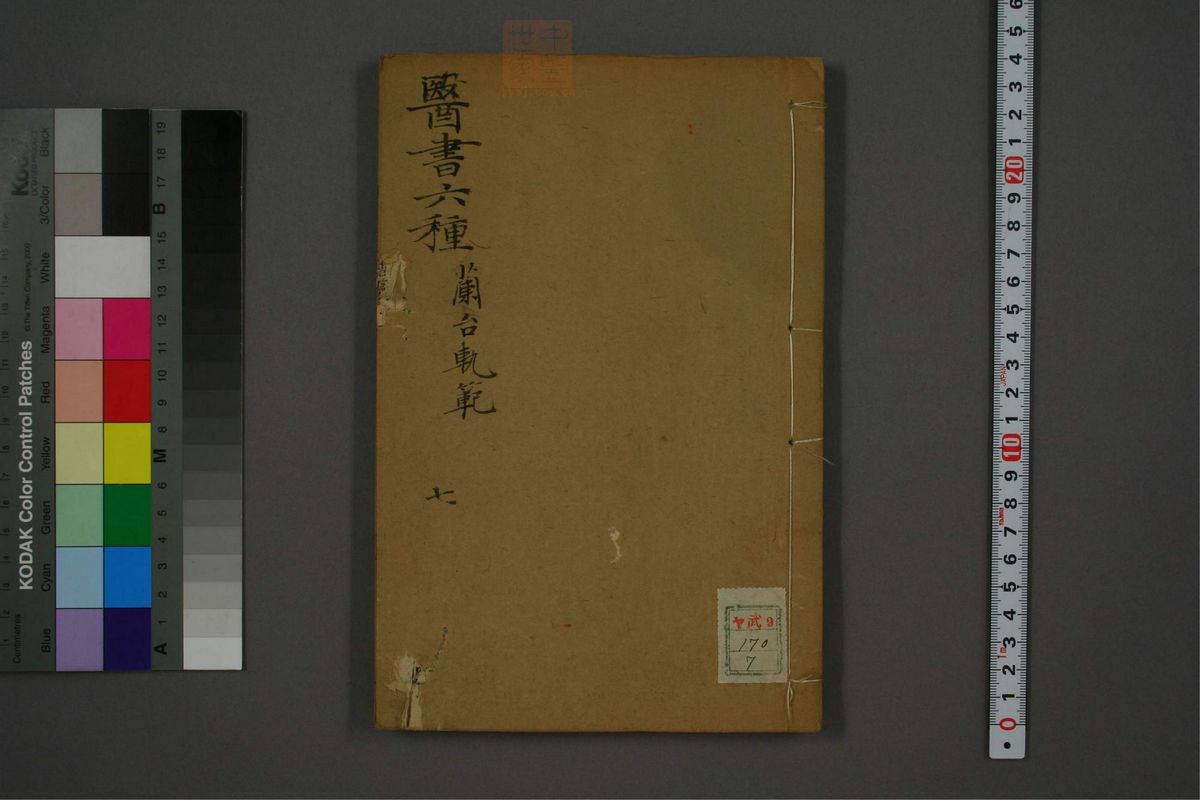 醫書六種
蘭台軌範
七
ヤ武9
170
7
KODAK Color Control Patches
© The Tiffen Company, 2000
Kodak
LICENSED PRODUCT
Centimetres
Blue
Cyan
Green
Yellow
Red
Magenta
White
3/Color
Black
A 1 2 3 4 5 6 M 8 9 10 11 12 13 14 15 B 17 18 19
0 1 2 3 4 5 6 7 8 9 10 1 2 3 4 5 6 7 8 9 20 1 2 3 4 5 6
1m
JAPAN